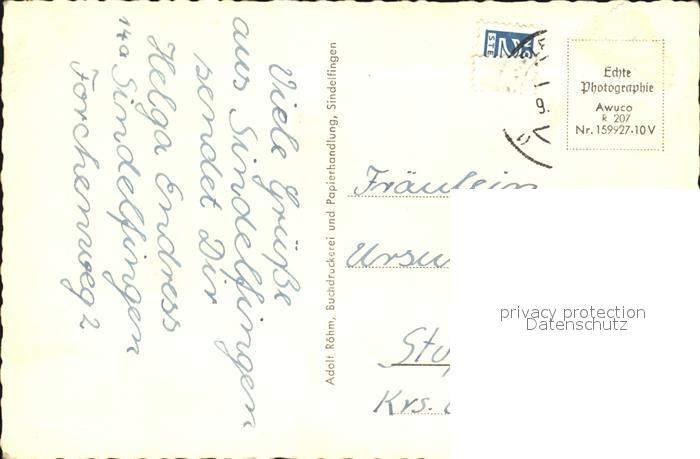 Viele Grüße
aus Sindelfingen
sendet Dir
Helga Endress
14a Sindelfingen
Forchenweg 2
Adolf Röhm, Buchdruckerei und Papierhandlung, Sindelfingen
STE
Echte
Photographie
Awuco
R 207
Nr. 159927-10V
Fräulein
Krs.
privacy protection
Datenschutz